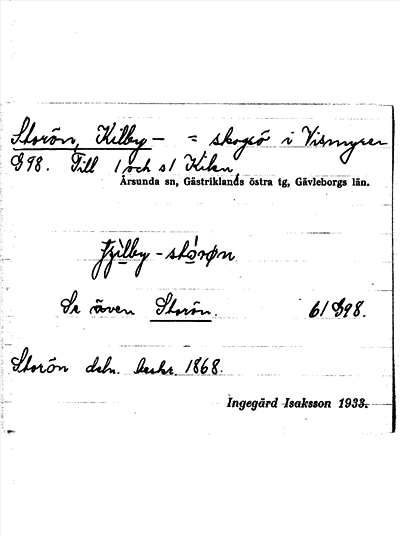 Storön, Kilby– = skogsö i Vismyren
G98. Till 1 och s1 Kilen
Årsunda sn, Gästriklands östra tg, Gävleborgs län.
-stòrøn
Se även Storön. 61 G98.
Storön deln. beskr. 1868.
Ingegärd Isaksson 1933.